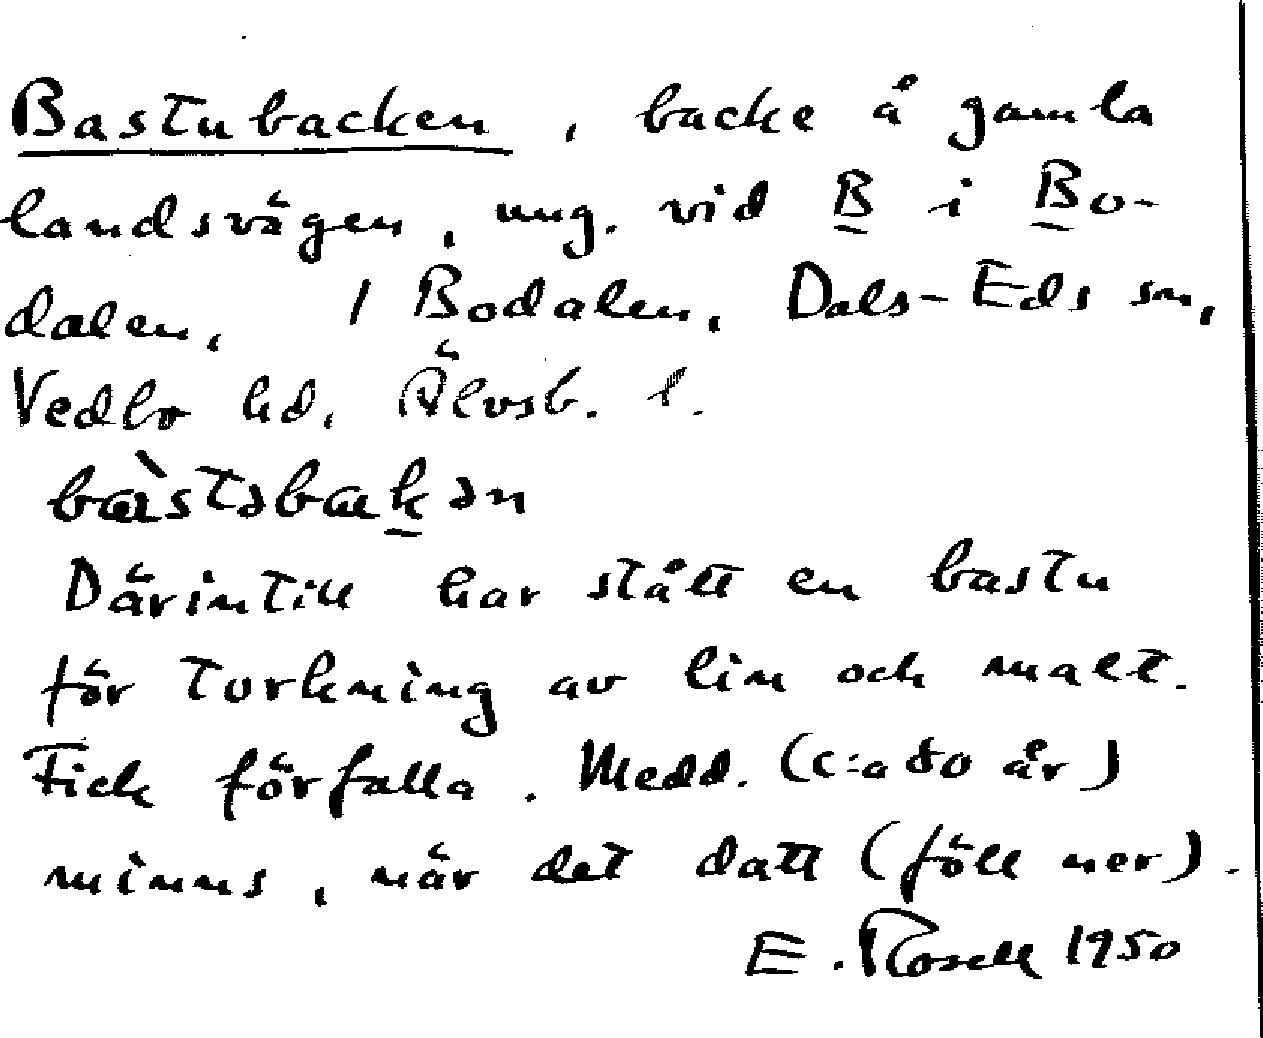 Bastubacken, backe å gamla
landsvägen, ung. vid B i Bo-
dalen, 1 Bodalen, Dals-Eds sn,
Vedbo hd, Älvsb. l.
bàstəbakən
Därintill har stått en bastu
för torkning av lin och malt.
Fick förfalla. Medd. (c:a 80 år)
minns, när det datt (föll ner).
E. Rosell 1950